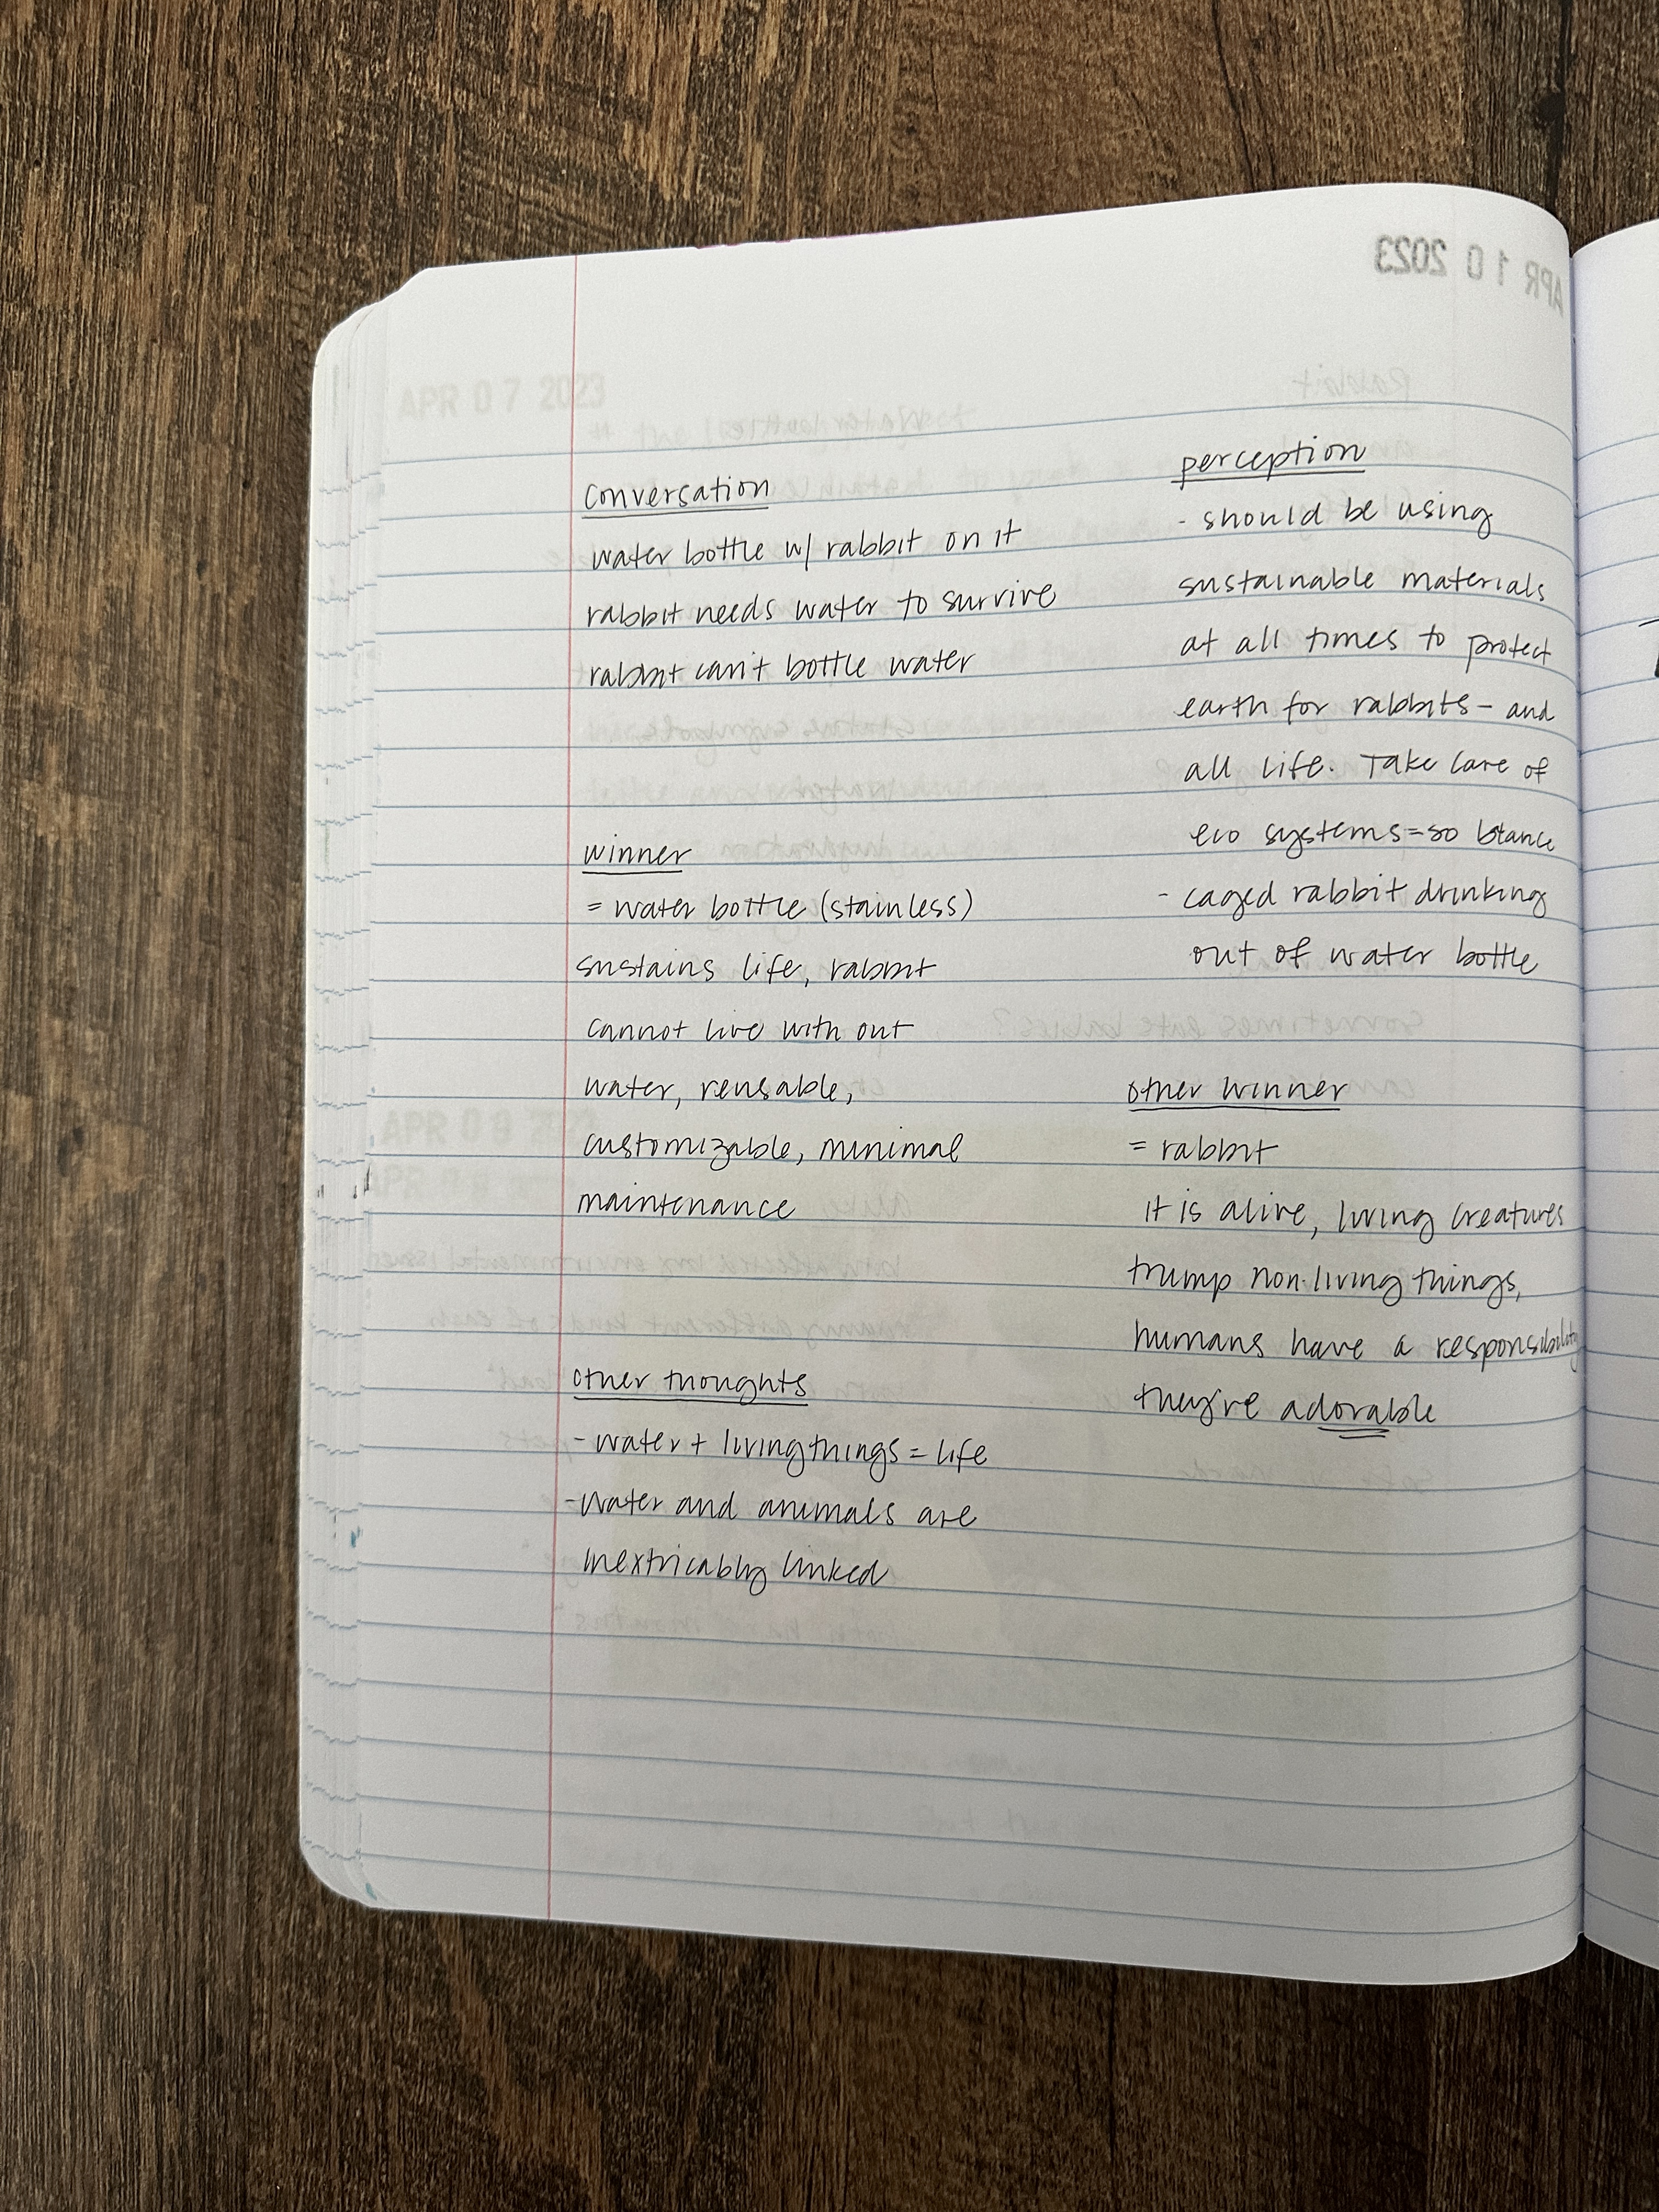 APR 10 2023
APR 07 2023
conversation
water bottle w/ rabbit on it
rabbit needs water to survive
rabbit can't bottle water
winner
= water bottle (stainless)
sustains life, rabbit
cannot live with out
water, reusable,
customizable, minimal
maintenance
other thoughts
- water + living things = life
- water and animals are
inextricably linked
perception
- should be using
sustainable materials
at all times to protect
earth for rabbits - and
all life. Take care of
eco systems = so
- caged rabbit drinking
out of water bottle
other winner
= rabbit
it is alive, living creatures
trump non-living things,
humans have a responsibility
they're adorable